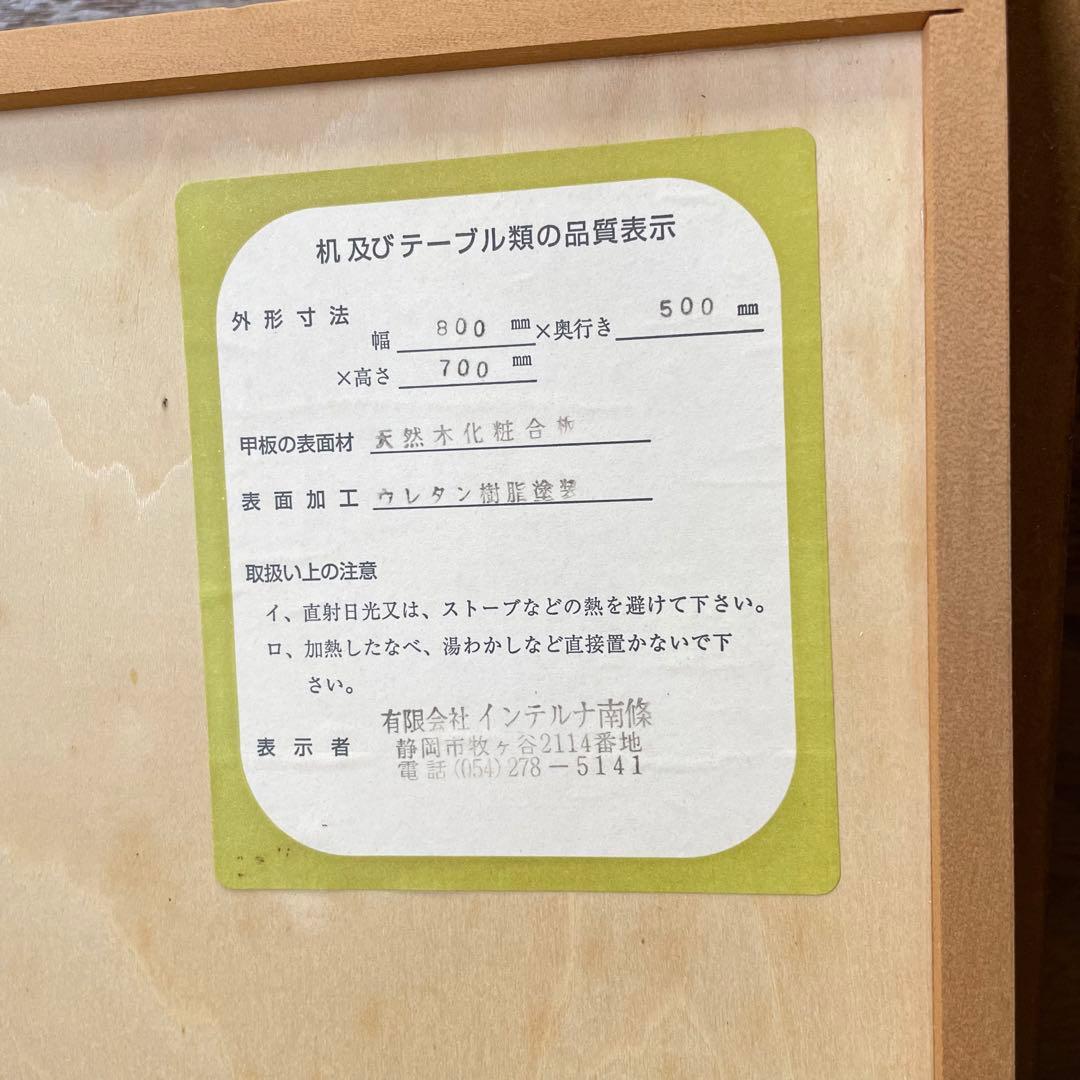 机及びテーブル類の品質表示
外形寸法
幅 800 mm ×奥行き 500 mm
×高さ 700 mm
甲板の表面材 天然木化粧合板
表面加工 ウレタン樹脂塗装
取扱い上の注意
イ、直射日光又は、ストーブなどの熱を避けて下さい。
ロ、加熱したなべ、湯わかしなど直接置かないで下
さい。
有限会社 インテルナ南條
表示者 静岡市牧ヶ谷2114番地
電話(054)278-5141